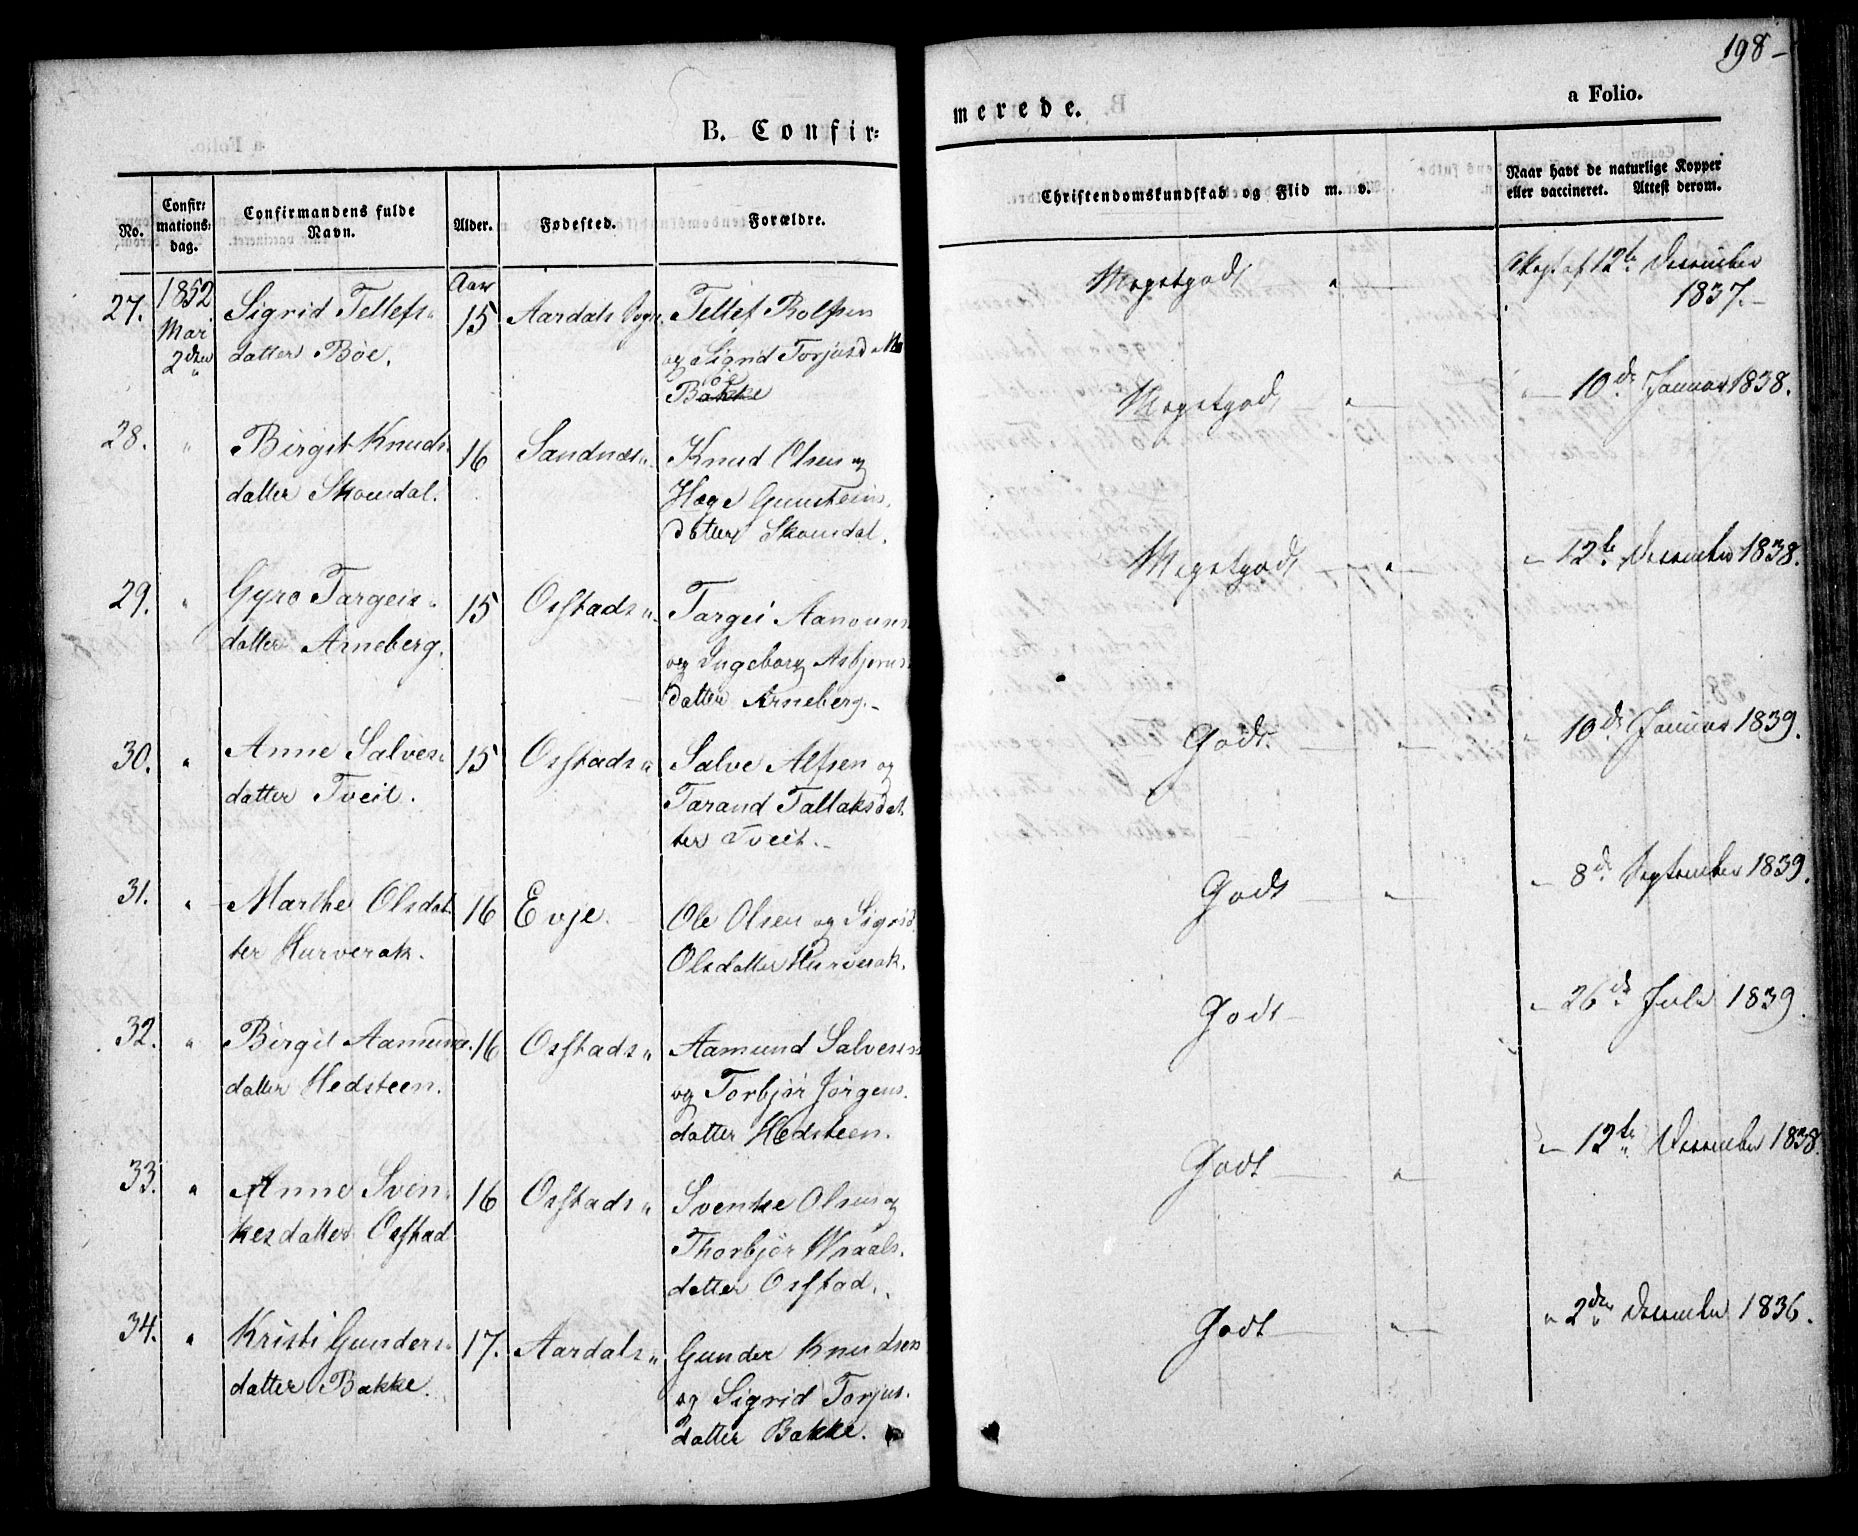 198-
B. Confir-
merede.
a Folio.
No.
Confir-
mations-
dag.
Confirmandens fulde
Navn.
Alder.
Fødested.
Forældre.
Christendomskundskab og Flid m. v.
Naar havt de naturlige Kopper
eller vaccineret. Attest derom.
27.
1852
Mai
2den
Sigrid Tellefs-
datter Böe.
Aar
15
Aardals Sogn.
Tellef Rolfsen
og Sigrid Torjusd
Bakke
Megetgodt
Attest af 12te December
1837.-
28.
"
Birgit Knuds-
datter Skomdal.
16
Sandnæs"
Knud Olsen og
Hæge Gunsteins-
datter Skomdal.
Megetgodt
" 10de Januar 1838.
29.
"
Gyro Targeis-
datter Arneberg.
15
Osstads"
Targei Aanonsen
og Ingeborg Asbjørns-
datter Arneberg.-
Megetgodt "
" 12te December 1838.
30.
"
Anne Salves-
datter Tveit.
15
Osstads"
Salve Alfsen og
Tarand Tallaksdat-
ter Tveit.-
Godt. "
" 10de Januar 1839.
31.
"
Marthe Olsdat-
ter Hurverak.
16
Evje.
Ole Olsen og Sigrid
Olsdatter Hurverak.
Godt "
" 8de September 1839.
32.
"
Birgit Aamunds-
datter Hedsteen.
16
Osstads"
Aamund Salvesen
og Torbjør Jørgens-
datter Hedsteen.
Godt
" 26de Juli 1839.
33.
"
Anne Sven-
kesdatter Osstad
16
Osstads"
Svenke Olsen og
Thorbjør Wraals-
datter Osstad.
Godt "
" 12te December 1838.
34.
"
Kristi Gunders-
datter Bakke.
17.
Aardals"
Gunder Knudsen
og Sigrid Torjus-
datter Bakke.
Godt "
" 2den December 1836.